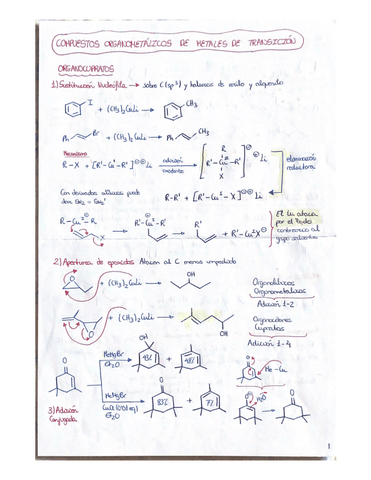 COMPUESTOS ORGANOMETÁLICOS DE METALES DE TRANSICIÓN
ORGANOCUPRATOS
1) Sustitución Nucleófila → sobre C(sp³) y haluros de arilo y alquenilo
I + (CH₃)₂CuLi → CH₃
Ph Br + (CH₃)₂CuLi → Ph CH₃
Mecanismo
R-X + [R'-Cu-R']⊖⊕Li adición oxidante [R'-Cu-R' R X]⊖ ⊕Li eliminación reductora
R-R' + [R'-Cu-X]⊖⊕Li
Con derivados alílicos puede
R-Cu-R' X → R' → R' + R'-Cu-X⊖
El Cu ataca
por el lado
contrario al
grupo saliente
2) Apertura de epóxidos Atacan al C menos impedido
O + (CH₃)₂CuLi → OH
O + (CH₃)₂CuLi → OH
Organolíticos
Organometálicos
Adición 1-2
Cupratos
Adición 1-4
O MeMgBr Et₂O OH 43% + 48%
O Me-Cu
3) Adición
Conjugada
MeMgBr
Et₂O
O 83% + 7%
O H₂O → O
1